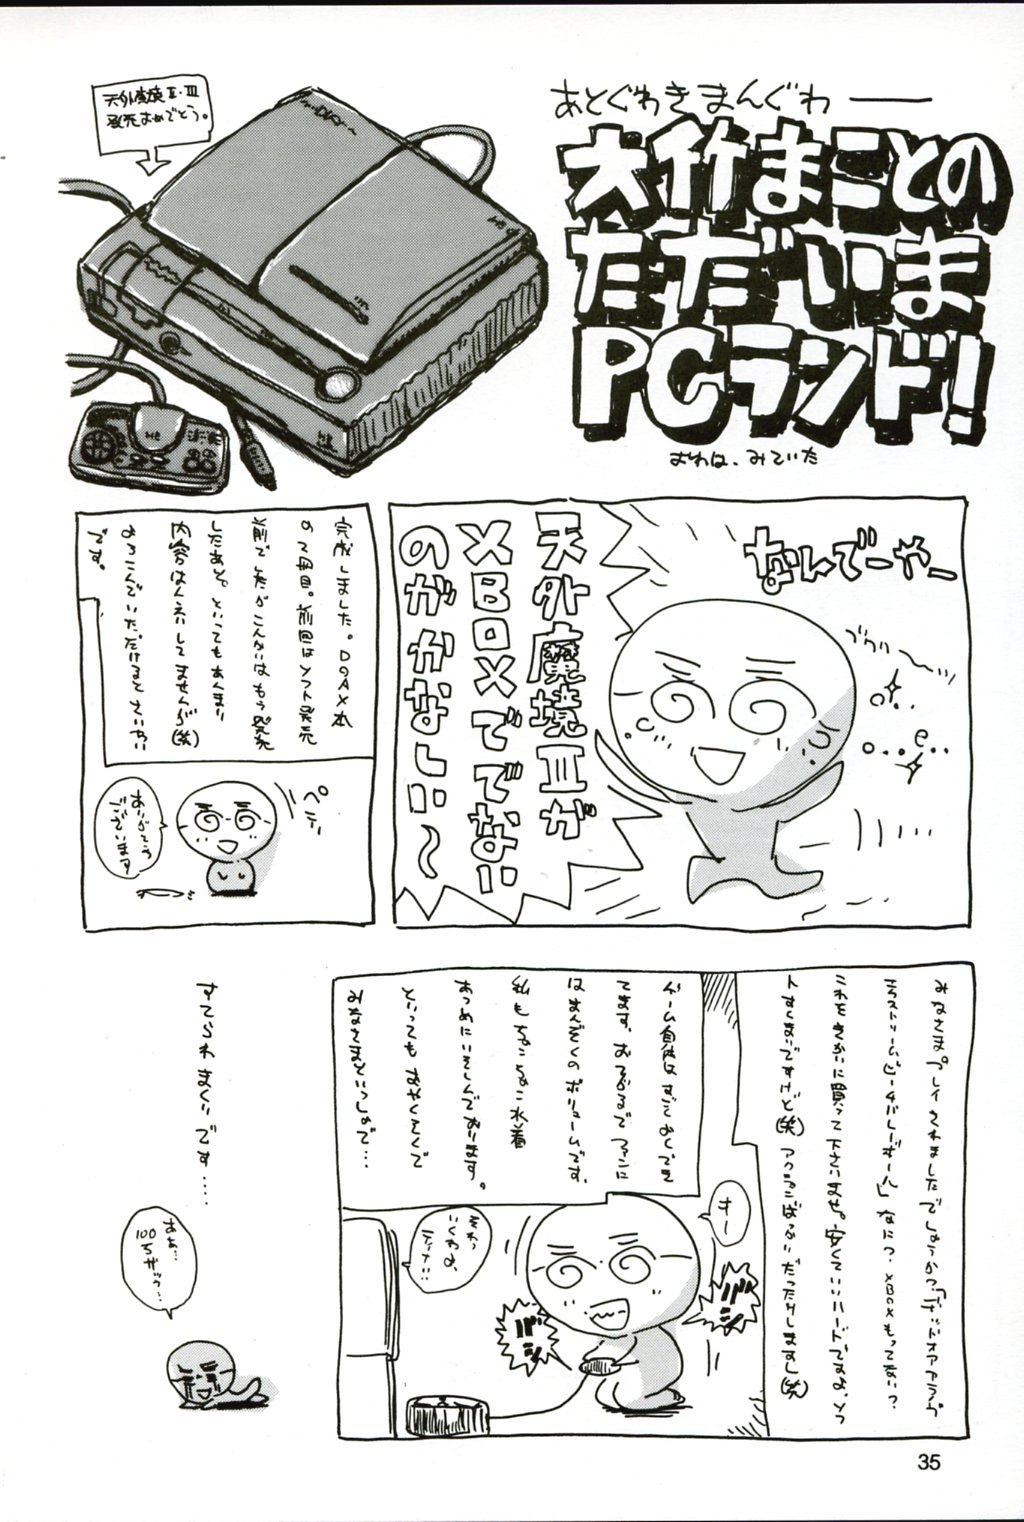 あとぐわきまんぐわ——
大竹まことの
ただいま
PCランド!
おわは、みていた
天外魔境Ⅱ・Ⅲ
発売おめでとう。
なんでーやー
天外魔境Ⅲが
XBOXででない
のがかなしい〜
完成しました。DOAX本
の2冊目。前回はソフト発売
前でしたがこんかいはもう発売
したあと。といってもあんまり
内容はんえいしてませんが(笑)
よろこんでいただけるとさいわい
です。
ペコ
ありがとう
ございます
みなさま。プレイされましたでしょうか?「デッドオアアライブ
エクストリームビーチバレーボール」なに?XBOXもってない?
これをきかいに買って下さいませ。安くていいハードですよ。ソフ
トすくないですけど(笑)アクションばっかだったりしますし(笑)
ゲーム自体はすごくよくできてます。
おさるでファンに
はまんぞくのボリュームです。
私もちょこちょこ水着
あつめにいそしんでおります。
といってもおやくそくで
みなさまといっしょで…
すー
それっ
いくわよ
ティナ…
バシッ
バシッ
すてられまくりです……
ああ…
100万ザック…
35